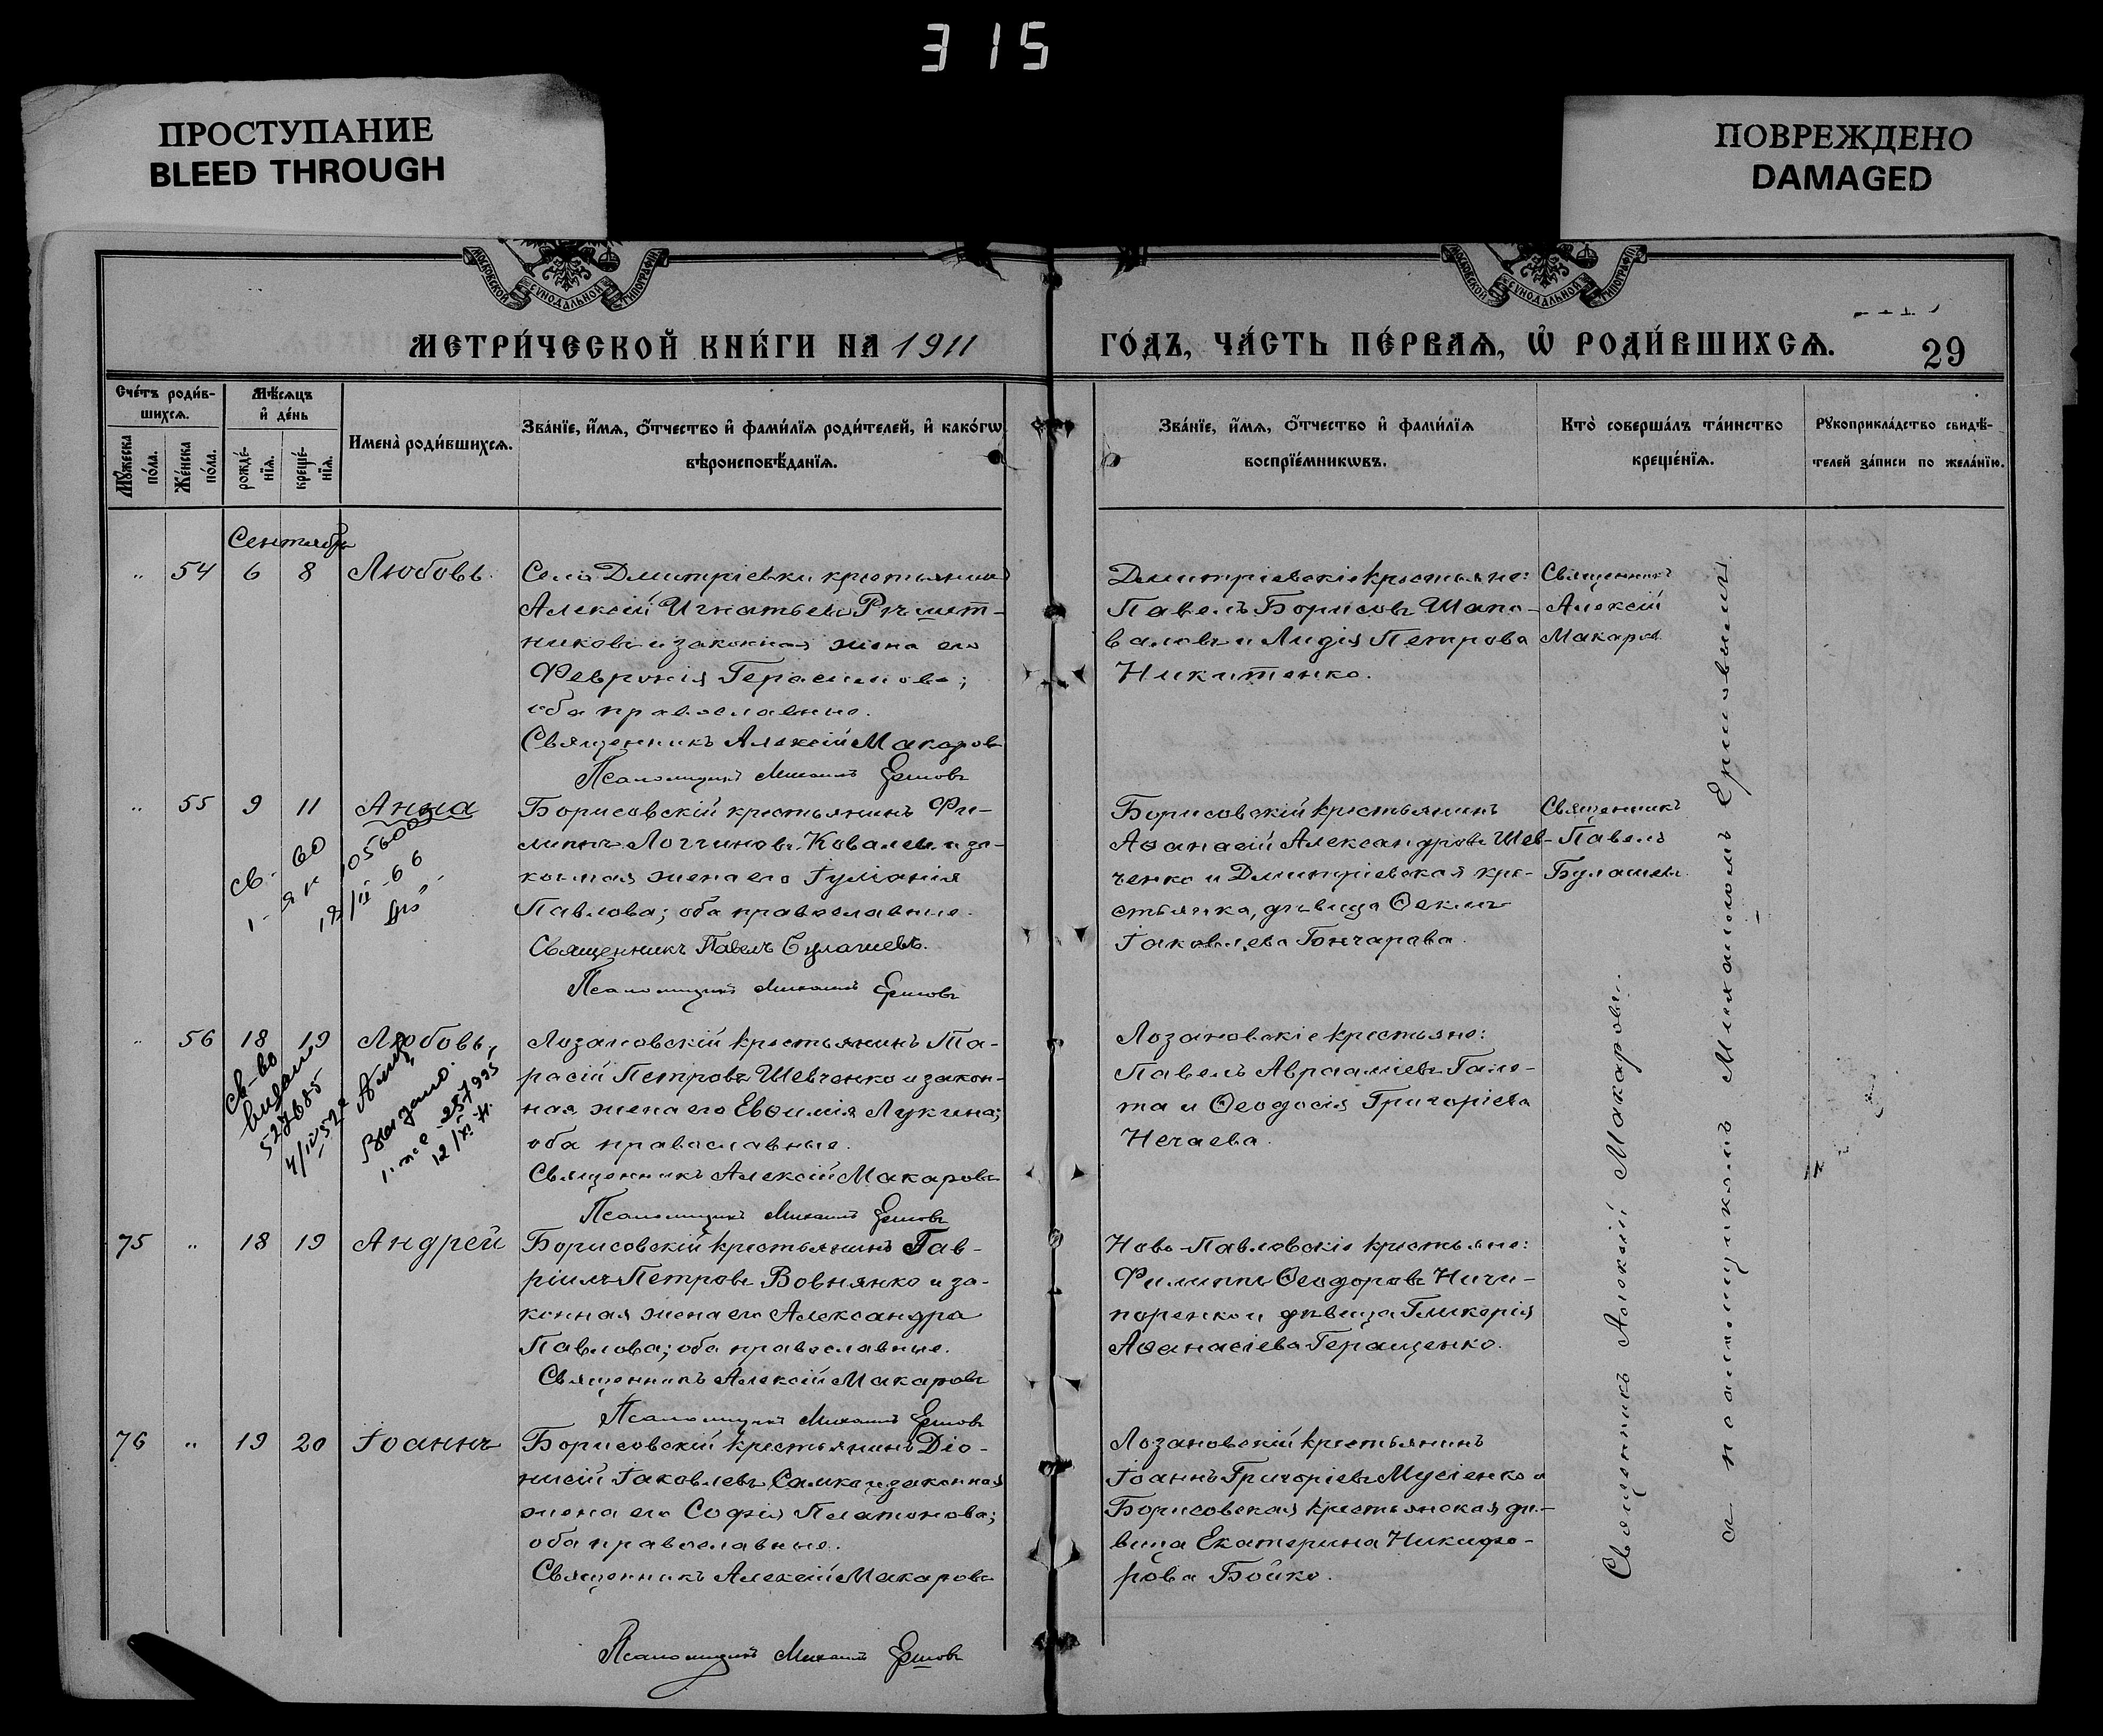 315
ПРОСТУПАНИЕ
BLEED THROUGH
ПОВРЕЖДЕНО
DAMAGED
МОСКОВСКОЙ СѴНОДАЛЬНОЙ ТИПОГРАФІИ
МОСКОВСКОЙ СѴНОДАЛЬНОЙ ТИПОГРАФІИ
МЕТРИ́ЧЕСКОЙ КНИ́ГИ НА 1911
ГО́ДЪ, ЧА́СТЬ ПЕ́РВАѦ, Ѡ҆ РОДИ́ВШИХСѦ.
29
Сче́тъ роди́в-
шихсѧ.
Мꙋ́жеска по́ла.
Же́нска по́ла.
Мѣ́сѧцъ
и҆ де́нь
рожде́-
нїѧ.
креще́-
нїѧ.
Имена̀ роди́вшихсѧ.
Зва́нїе, и҆́мѧ, ѻ҆́тчество и҆ фами́лїѧ роди́телей, и҆ како́гѡ
вѣроисповѣ́данїѧ.
Зва́нїе, и҆́мѧ, ѻ҆́тчество и҆ фами́лїѧ
воспрїе́мникѡвъ.
Кто̀ соверша́лъ та́инство
креще́нїѧ.
Рꙋкоприкла́дство свидѣ́-
телей за́писи по жела́нїю.
Сентябрь
" 54 6 8 Любовь.
Села Дмитріевки крестьянинъ
Алексій Игнатьевъ Рѣшет-
никовъ и законная жена его
Февронія Герасимова;
оба православные.
Священникъ Алексій Макаровъ
Псаломщикъ Михаилъ Ершовъ
Дмитріевскіе крестьяне:
Павелъ Борисовъ Шапо-
валовъ и Лидія Петрова
Никитенко.
Священникъ
Алексій
Макаровъ
" 55 9 11 Анна
Борисовскій крестьянинъ Фи-
липпъ Логгиновъ Ковалевъ и за-
конная жена его Іуліанія
Павлова; оба православные.
Священникъ Павелъ Булашевъ.
Псаломщикъ Михаилъ Ершовъ
Борисовскій крестьянинъ
Аѳанасій Александровъ Шев-
ченко и Дмитріевская кре-
стьянка, дѣвица Ѳекла
Іаковлева Гончарова.
Священникъ
Павелъ
Булашевъ.
" 56 18 19 Любовь.
св-во
выдано
Выдано.
Лозановскій крестьянинъ Та-
расій Петровъ Шевченко и закон-
ная жена его Евѳимія Лукина;
оба православные.
Священникъ Алексій Макаровъ
Псаломщикъ Михаилъ Ершовъ
Лозановскіе крестьяне:
Павелъ Авраамiевъ Гали-
та и Ѳеодосія Григоріева
Нечаева.
75 " 18 19 Андрей
Борисовскій крестьянинъ Гав-
ріилъ Петровъ Вовнянко и за-
конная жена его Александра
Павлова; оба православные.
Священникъ Алексій Макаровъ
Псаломщикъ Михаилъ Ершовъ
Ново-Павловскіе крестьяне:
Филиппъ Ѳеодоровъ Ничи-
поренко и дѣвица Гликерія
Аѳанасіева Геращенко.
76 " 19 20 Іоаннъ
Борисовскій крестьянинъ Діо-
нисій Іаковлевъ Самко и законная
жена его Софія Платонова;
оба православные.
Священникъ Алексій Макаровъ
Псаломщикъ Михаилъ Ершовъ
Лозановскій крестьянинъ
Іоаннъ Григоріевъ Мусіенко и
Борисовская крестьянская дѣ-
вица Екатерина Никифо-
рова Бойко.
Священникъ Алексій Макаровъ.
съ псаломщикомъ Михаиломъ Ершовымъ.